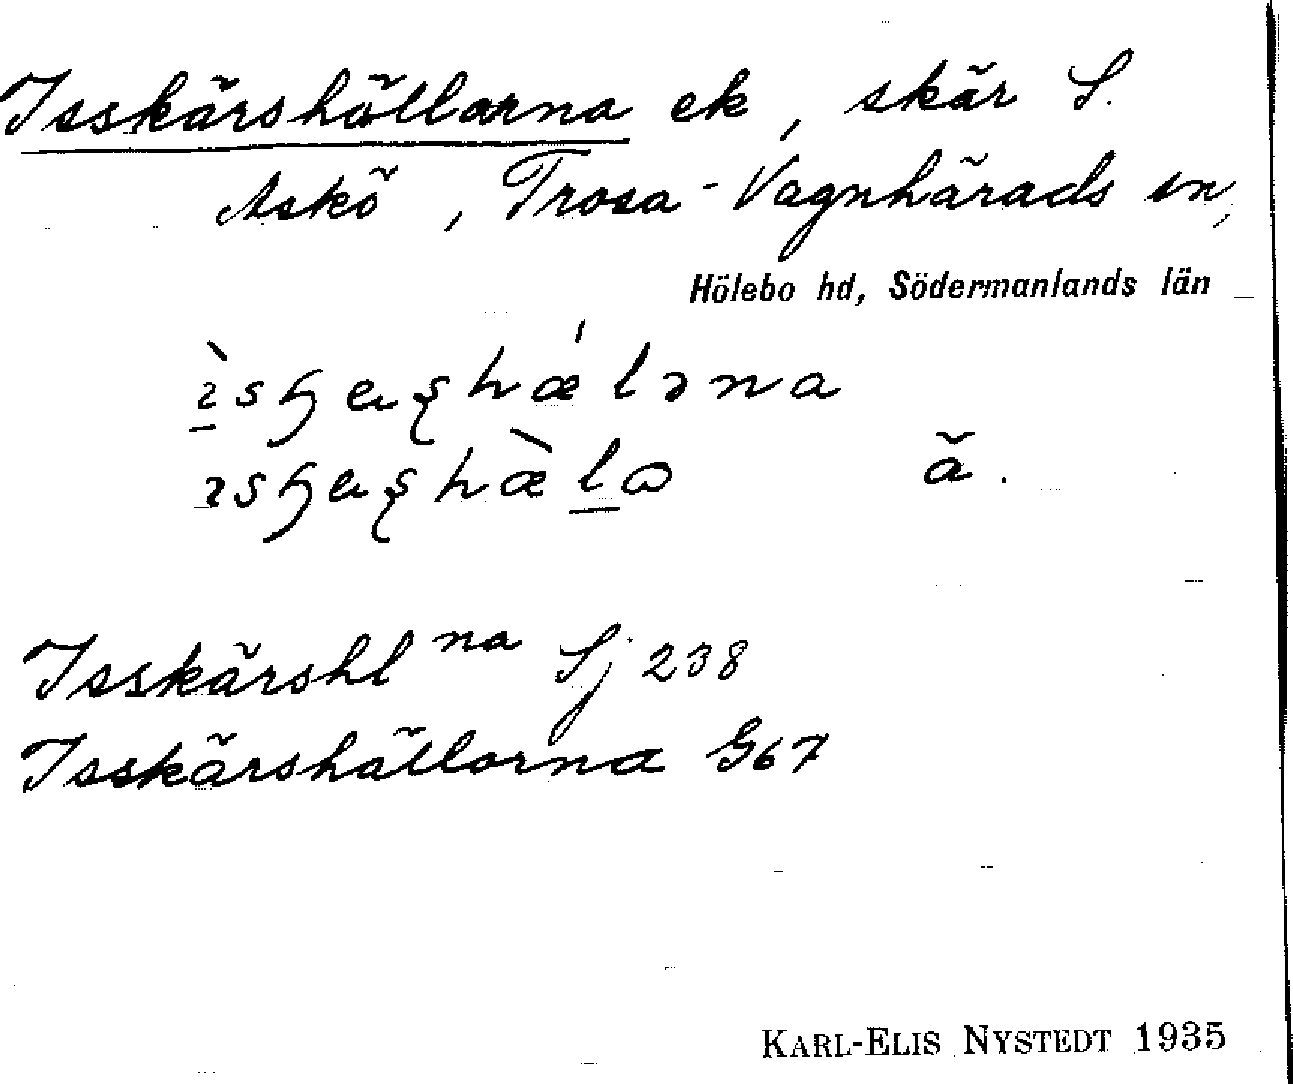 Isskärshällorna ek, skär S.
Askö, Trosa-Vagnhärads sn,
Hölebo hd, Södermanlands län
ă.
Isskärshl na Sj 238
Isskärshällorna G67
KARL-ELIS NYSTEDT 1935